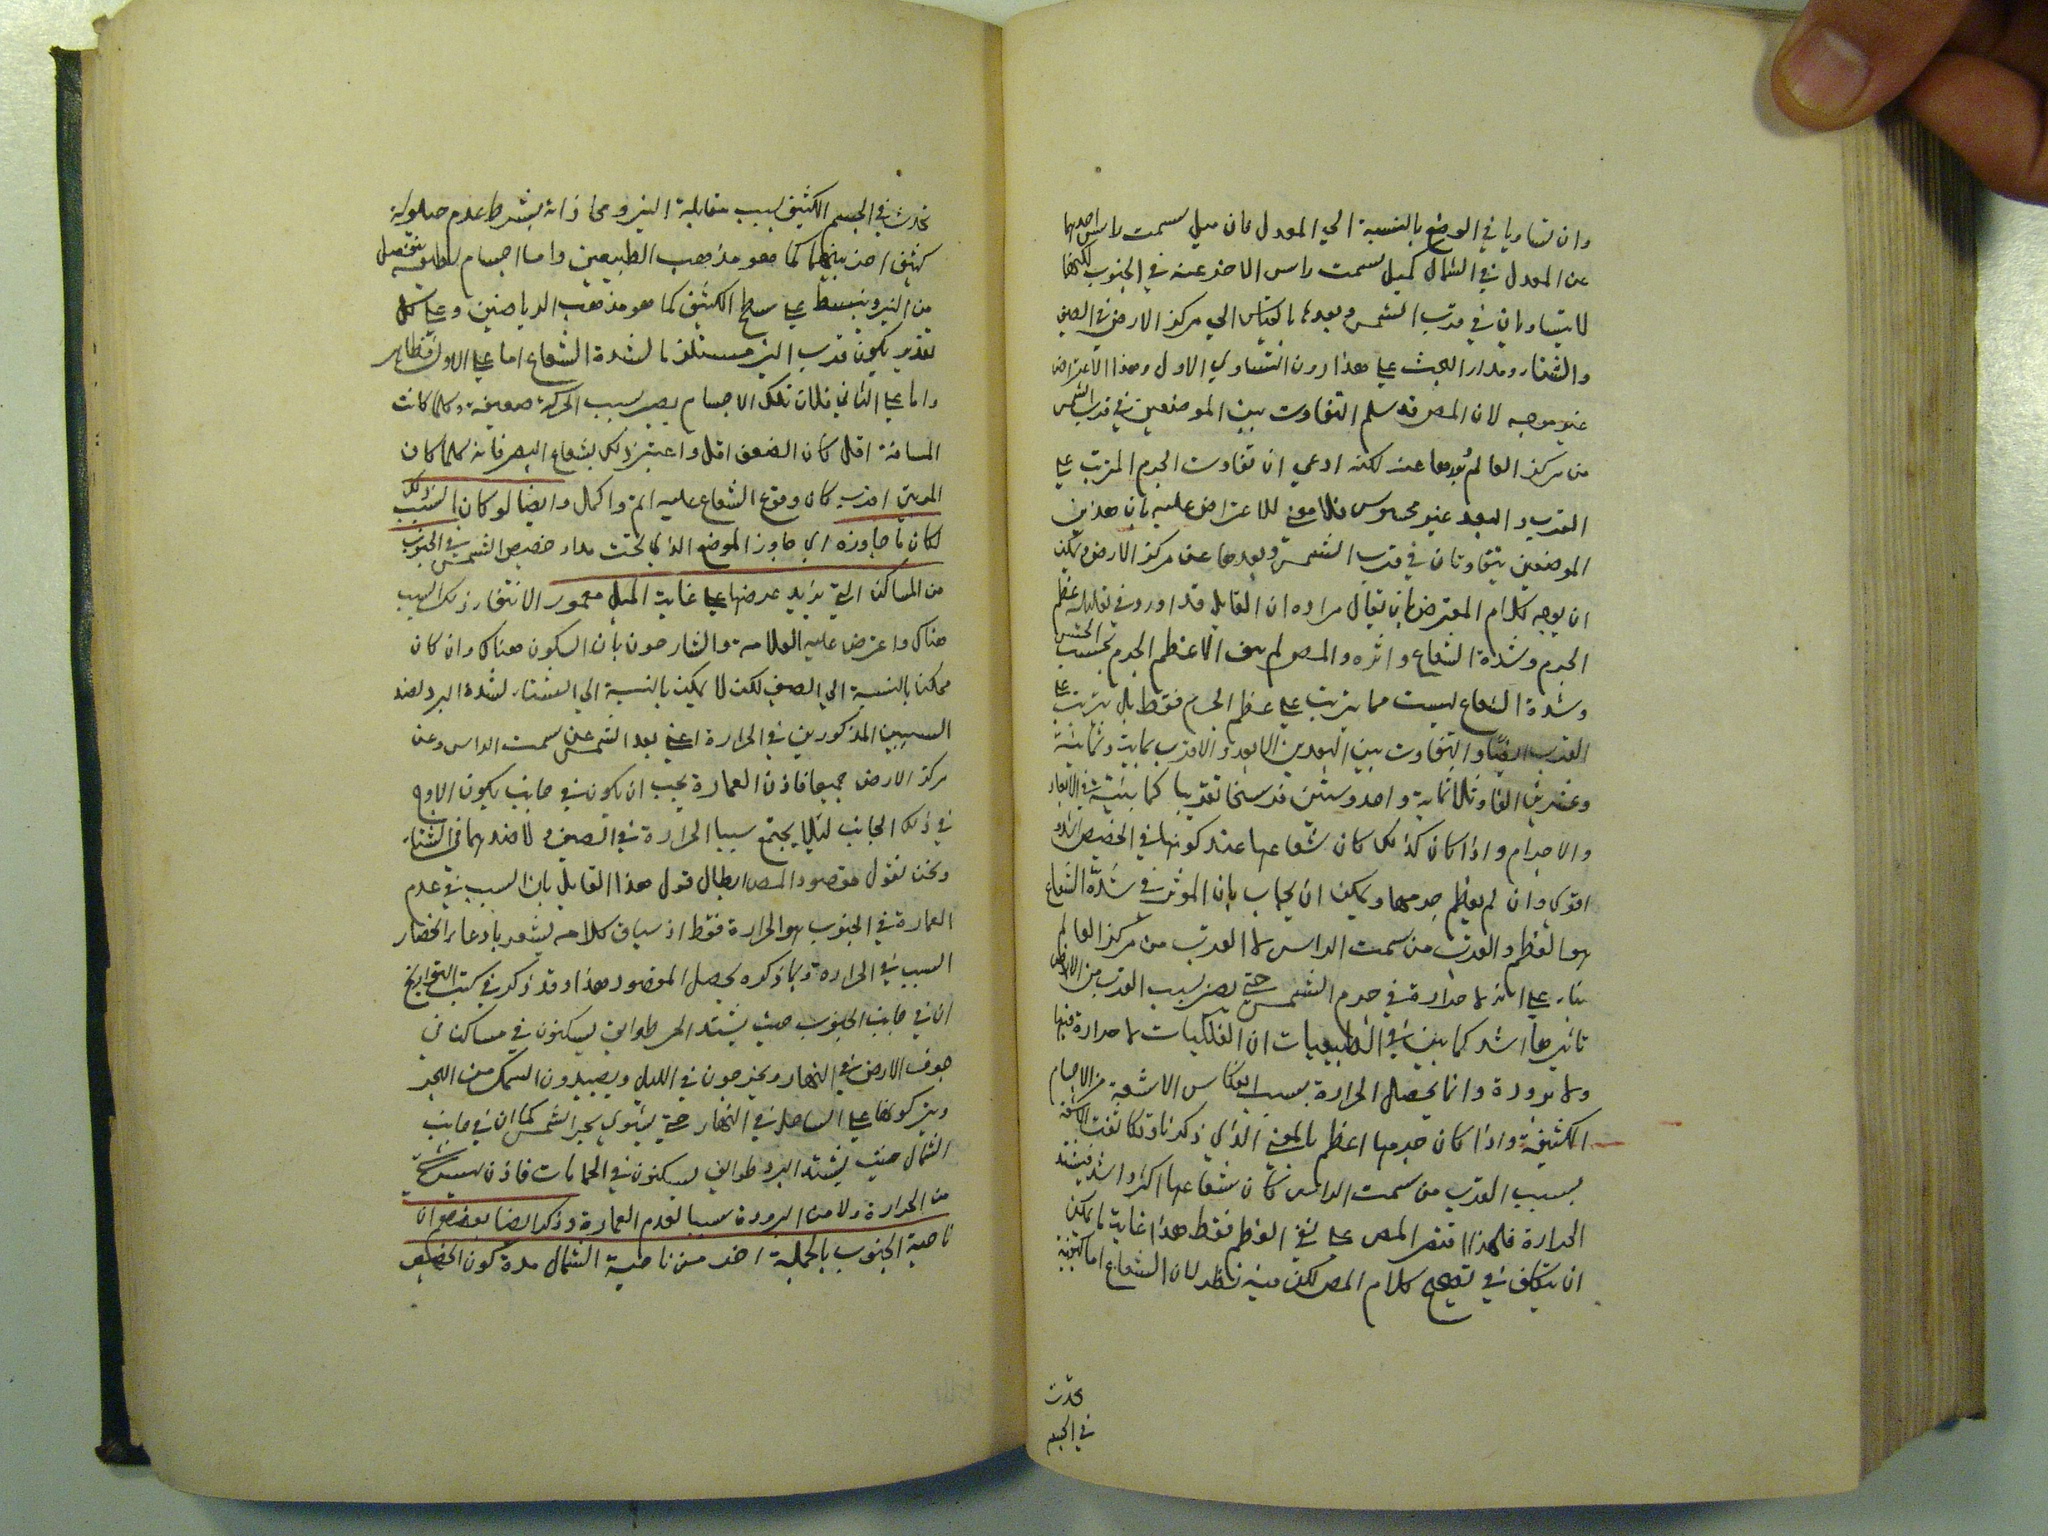 وان تساويا في الوضع بالنسبة الي المعدل فان ميل سمت راس احديهما
عن المعدل في الشمال كميل سمت راس الاخر عنه في الجنوب لكنهما
لا يتساويان في قرب الشمس وبعدها بالقياس الي مركز الارض في الصيف
والشتاء ومدار البحث علي هذا دون التساوي الاول وهذا الاعتراض
غير موجه لان المصـ قد سلم التفاوت بين الموضعين في قرب الشمس
من مركز العالم وبعدها عنه لكنه ادعي ان تفاوت الجرم المرتب علي
القرب والبعد غير محسوس فلا معني للاعتراض عليه بان هذين
الموضعين يتفاوتان في قرب الشمس وبعدها عن مركز الارض ويمكن
ان يوجه كلام المعترض بان يقال مراده ان القايل قد اورد في تعليله عظم
الجرم وشدة الشعاع واثره والمصـ لم ينف الا عظم الجرم بحسب الحس
وشدة الشعاع ليست مما يترتب علي عظم الجرم فقط بل يترتب علي
القرب ايضا والتفاوت بين البعدين الابعد والاقرب بماية وثمانية
وعشرين الفا وثلاثماية واحد وستين فرسخا تقريبا كما بينته في الابعاد
والاجرام واذا كان كذلك كان شعاعها عند كونها في الحضيض اشد و
اقوي وان لم يعظم جرمها ويمكن ان يجاب بان الموثر في شدة الشعاع
هو العظم والقرب من سمت الراس لا القرب من مركز العالم
بناء علي انه لا حرارة في جرم الشمس حتي يصير بسبب القرب من الارض
تاثيرها اشد كما بين في الطبيعيات ان الفلكيات لا حرارة فيها
ولا برودة وانما يحصل الحرارة بسبب انعكاس الاشعة من الاجسام
الكثيفة واذا كان جرمها اعظم بالمعني الذي ذكرنا وتكاثفت الاشعة
بسبب القرب من سمت الراس كان شعاعها اكثر واشد فيشتد
الحرارة فلهذا اقتصر المصـ علي نفي العظم فقط هذا غاية ما يمكن
ان يتكلف في تصحيح كلام المصـ لكن فيه نظر لان الشعاع اما كيفية
تحدث
في الجسم
تحدث في الجسم الكثيف بسبب مقابلة النير ومحاذاته بشرط عدم حيلولة
كثيف اخر بينهما كما هو مذهب الطبيعيين واما اجسام لطيفة تنفصل
من النير وتنبسط علي سطح الكثيف كما هو مذهب الرياضيين وعلي كل
تقدير يكون قرب النير مستلزما لشدة الشعاع اما علي الاول فظاهر
واما علي الثاني فلان تلك الاجسام يصير بسبب الحركة ضعيفة وكلما كانت
المسافة اقل كان الضعف اقل واعتبر ذلك بشعاع البصر فانه كلما كان
المريي اقرب كان وقوع الشعاع عليه اتم واكمل وايضا لو كان السبب ذلك
لكان ما جاوزه اي جاوز الموضع الذي تحت مدار حضيض الشمس في الجنوب
من المساكن التي يزيد عرضها علي غاية الميل معمور الانتفاء ذلك السبب
هناك واعترض عليه العلامة والشارحون بان السكون هناك وان كان
ممكنا بالنسبة الي الصيف لكن لا يمكن بالنسبة الي الشتاء لشدة البرد لضد
السببين المذكورين في الحرارة اعني بعد الشمس عن سمت الراس وعن
مركز الارض جميعا فاذن العمارة يجب ان يكون في جانب يكون الاوج
في ذلك الجانب ليلا يجتمع سببا الحرارة في الصيف ولا ضدهما في الشتاء
ونحن نقول مقصود المصـ ابطال قول هذا القايل بان السبب في عدم
العمارة في الجنوب هو الحرارة فقط اذ سياق كلامه يشعر بادعاء انحصار
السبب في الحرارة وبما ذكره يحصل المقصود هذا وقد ذكر في كتب التواريخ
ان في جانب الجنوب حيث يشتد الحر طوايف يسكنون في مساكن في
جوف الارض في النهار ويخرجون في الليل ويصيدون السمك من البحر
ويتركونها علي الساحل في النهار حتي يشوي بحر الشمس كما ان في جانب
الشمال حيث يشتد البرد طوايف يسكنون في الحمامات فاذن ليس شي
من الحرارة ولا من البرودة سببا لعدم العمارة وذكر ايضا بعضهم ان
ناحية الجنوب بالجملة احر من ناحية الشمال مدة كون الحضيض